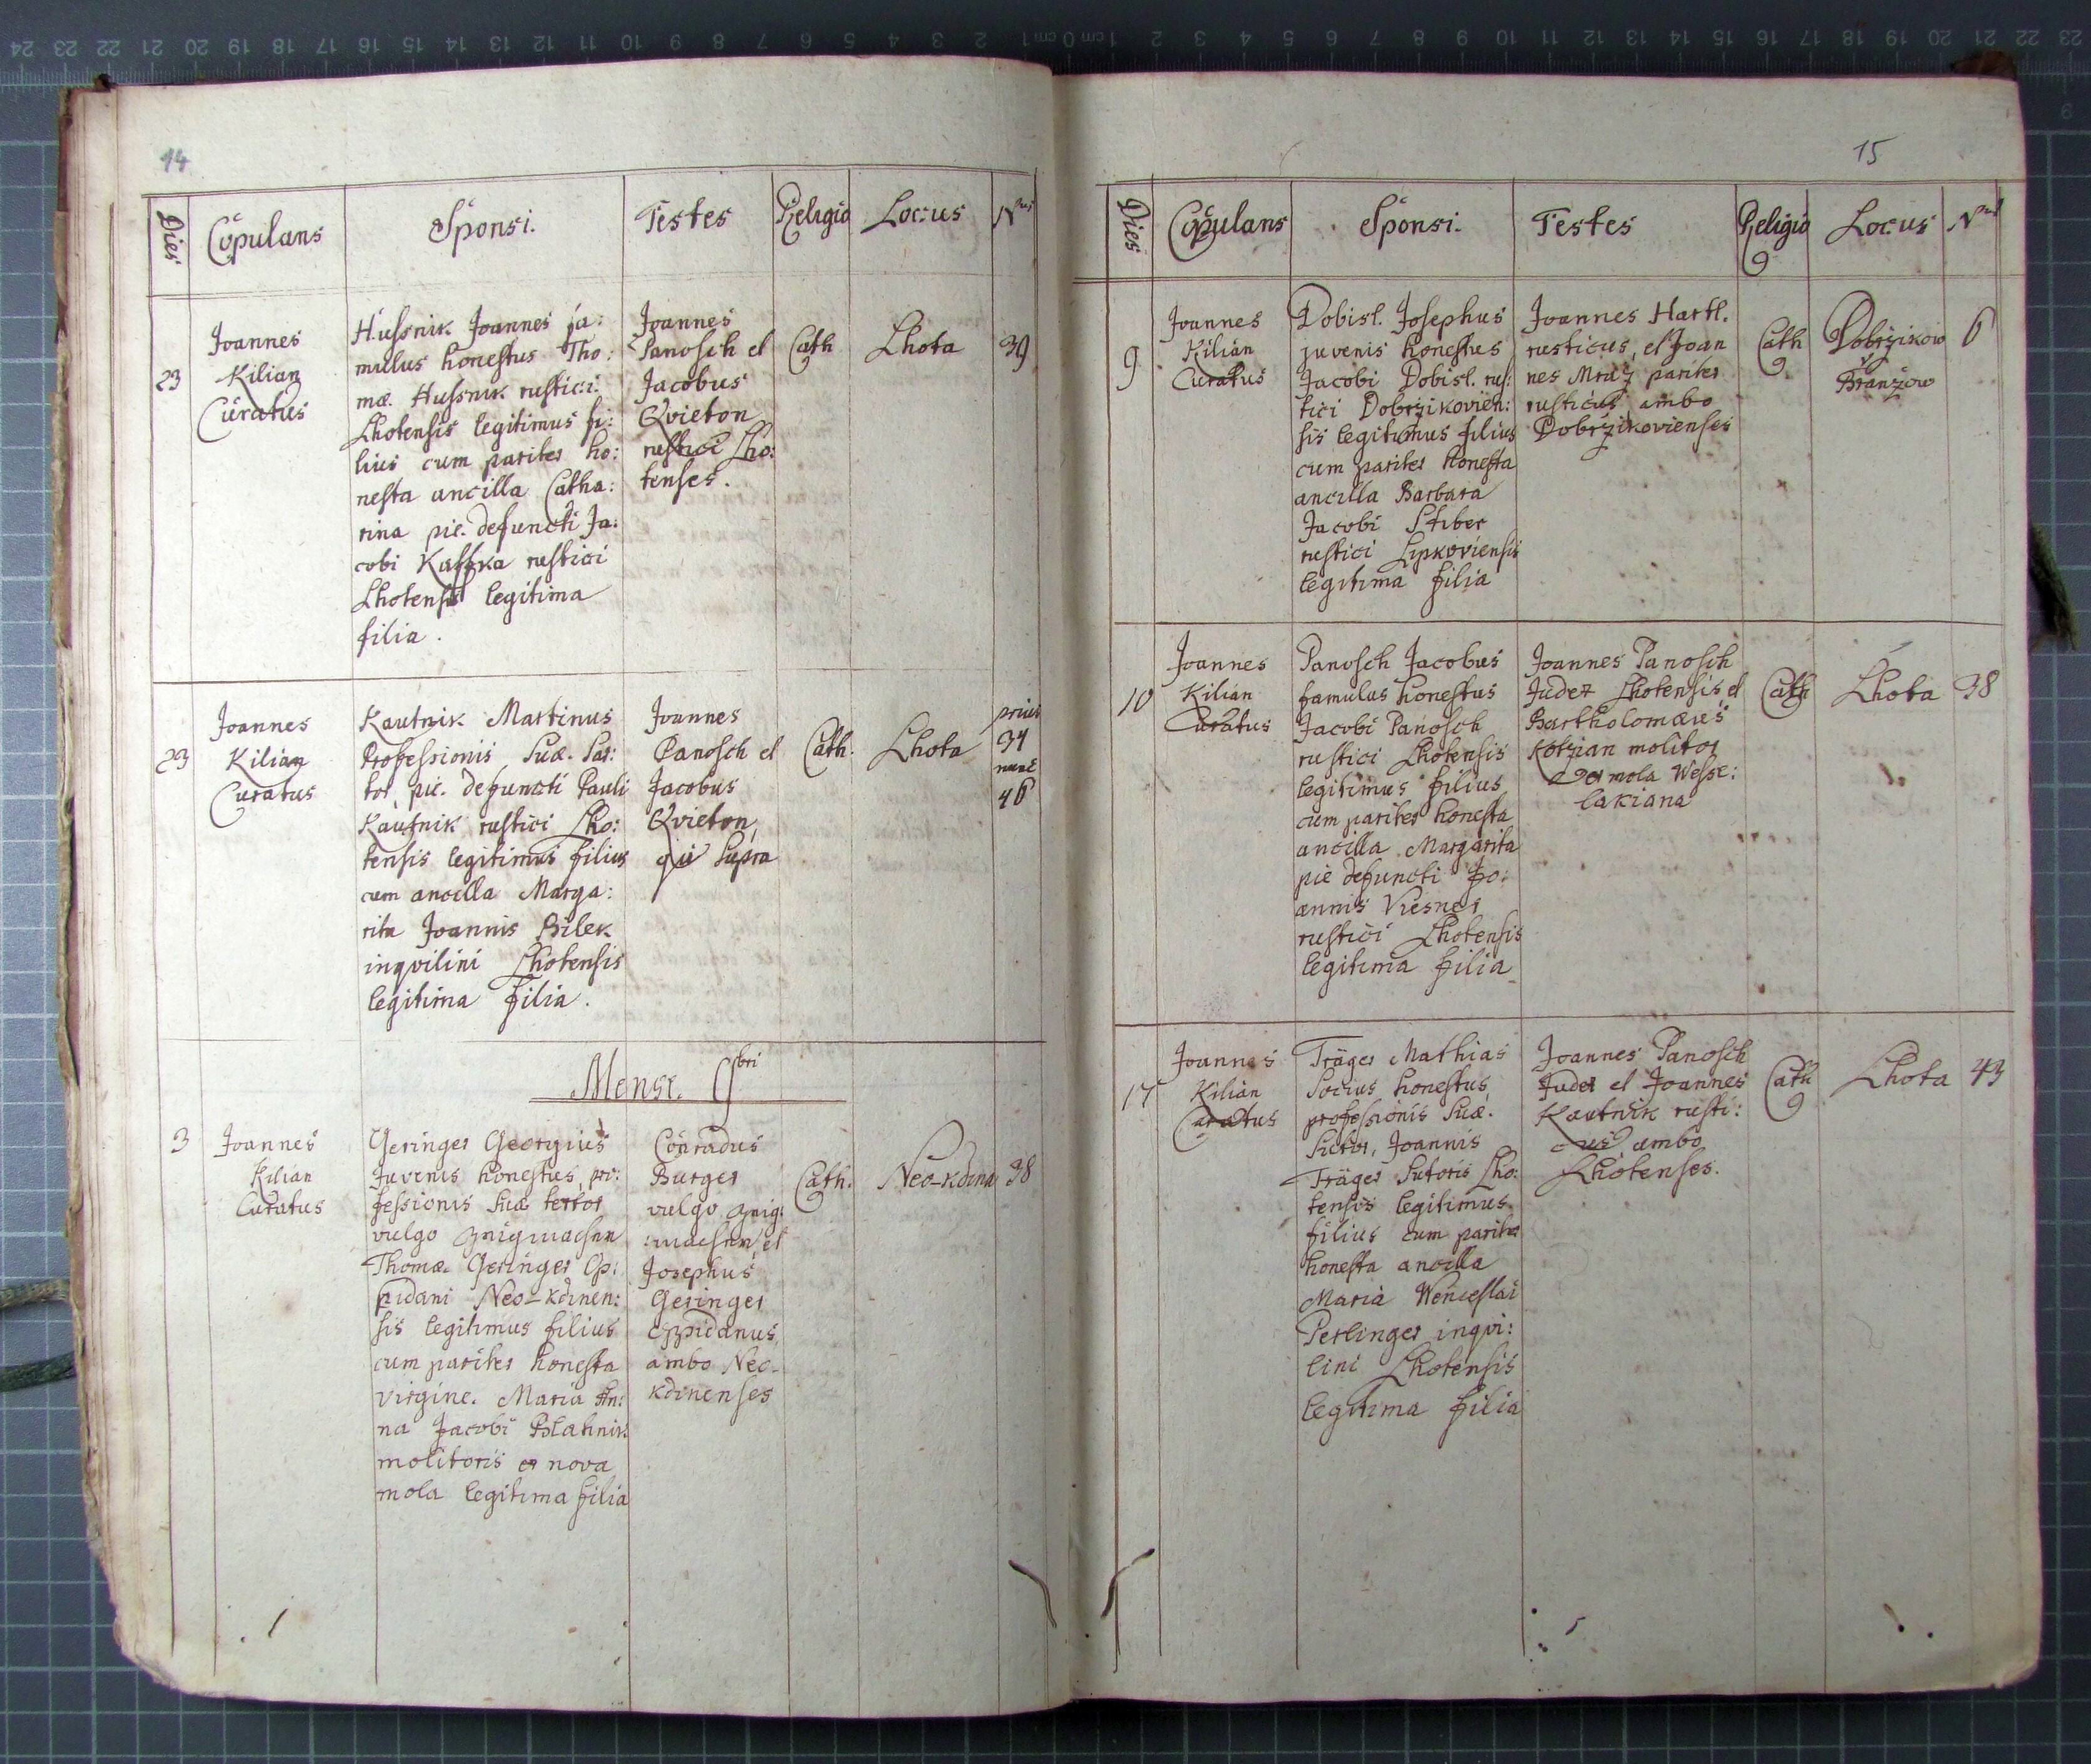 14
Dies Copulans Sponsi. Testes Religio Locus Nrus
23
Joannes
Kilian
Curatus
Hussnik Joannes fa:
mulus honestus Tho:
mæ. Hussnik rustici
Lhotensis legitimus fi:
lius cum pariter ho:
nesta ancilla Catha:
rina pie. defuncti Ja:
cobi Kaffka rustici
Lhotensis legitima
filia.
Joannes
Panosch et
Jacobus
Qvieton
rustici Lho:
tenses.
Cath
Lhota
39
23
Joannes
Kilian
Curatus
Kautnik Martinus
Professionis suæ. Sar:
tor, pie. defuncti Pauli
Kautnik rustici Lho:
tensis legitimus filius
cum ancilla Marga:
rita Joannis Bilek
inqvilini Lhotensis
legitima filia.
Joannes
Panosch et
Jacobus
Qvieton,
qui supra
Cath.
Lhota
prius
34
nunc
46
Mense. 9bri
3
Joannes
Kilian
Curatus
Geringer Georgius
Juvenis honestus, pro:
fessionis suæ textor
vulgo Zeigmacher
Thomæ Geringer Op:
pidani Neo-Kdinen:
sis legitimus filius
cum pariter honesta
virgine. Maria An:
na Jacobi Blahnik
molitoris ex nova
mola legitima filia
Conradus
Burger
vulgo Zeig:
:macher, et
Josephus
Geringer
Oppidanus,
ambo Neo-
Kdinenses
Cath.
Neo-Kdina
38
15
Dies Copulans Sponsi. Testes Religio Locus Nrus
9
Joannes
Kilian
Curatus
Dobisl. Josephus
juvenis honestus
Jacobi Dobisl. rus:
tici Dobrzikovien:
sis legitimus filius
cum pariter honesta
ancilla Barbara
Jacobi Stiber
rustici Lipkoviensis
legitima filia
Joannes Hartl.
rusticus, et Joan
nes Mraz pariter
rusticus ambo
Dobrzikovienses
Cath
Dobrzikow
Branzow
6
10
Joannes
Kilian
Curatus
Panosch Jacobus
famulus honestus
Jacobi Panosch
rustici Lhotensis
legitimus filius
cum pariter honesta
ancilla Margarita
pie defuncti Jo:
annis Viesner
rustici Lhotensis
legitima filia
Joannes Panosch
Judex Lhotensis, et
Bartholomæus
Kotzian molitor
ex mola Wesse:
lakiana
Cath
Lhota
38
17
Joannes
Kilian
Curatus
Träger Mathias
Socius honestus,
professionis suæ.
Sutor, Joannis
Träger Sutoris Lho:
tensis legitimus
filius cum pariter
honesta ancilla
Maria Wenceslai
Perlinger inqvi:
lini Lhotensis
legitima filia
Joannes Panosch
Judex et Joannes
Kautnik rusti:
cus ambo
Lhotenses.
Cath
Lhota
43